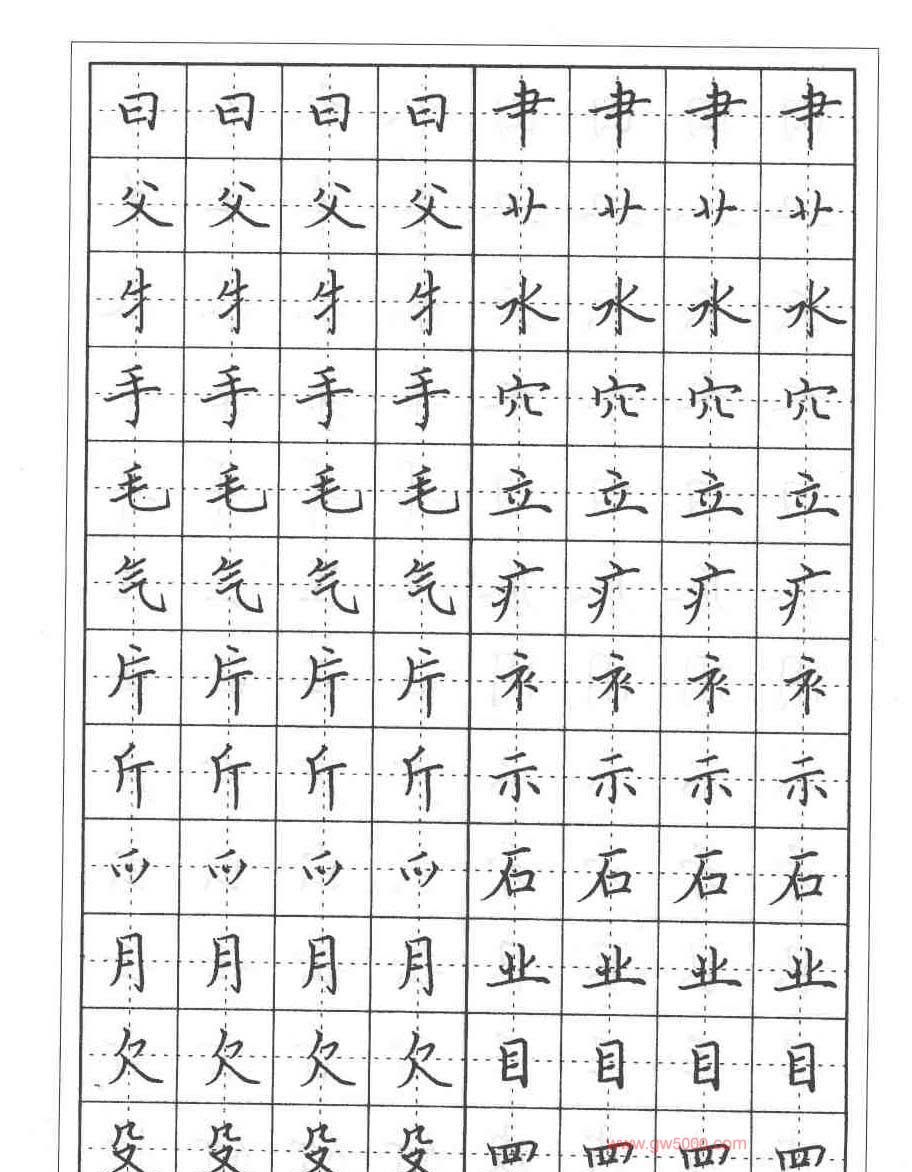 曰 曰 曰 曰 肀 肀 肀 肀
父 父 父 父
牜 牜 牜 牜 水 水 水 水
手 手 手 手 穴 穴 穴 穴
毛 毛 毛 毛 立 立 立 立
气 气 气 气 疒 疒 疒 疒
片 片 片 片 衤 衤 衤 衤
斤 斤 斤 斤 示 示 示 示
爫 爫 爫 爫 石 石 石 石
月 月 月 月 业 业 业 业
欠 欠 欠 欠 目 目 目 目
殳 殳 殳 殳 罒 罒 罒 罒
www.gw5000.com